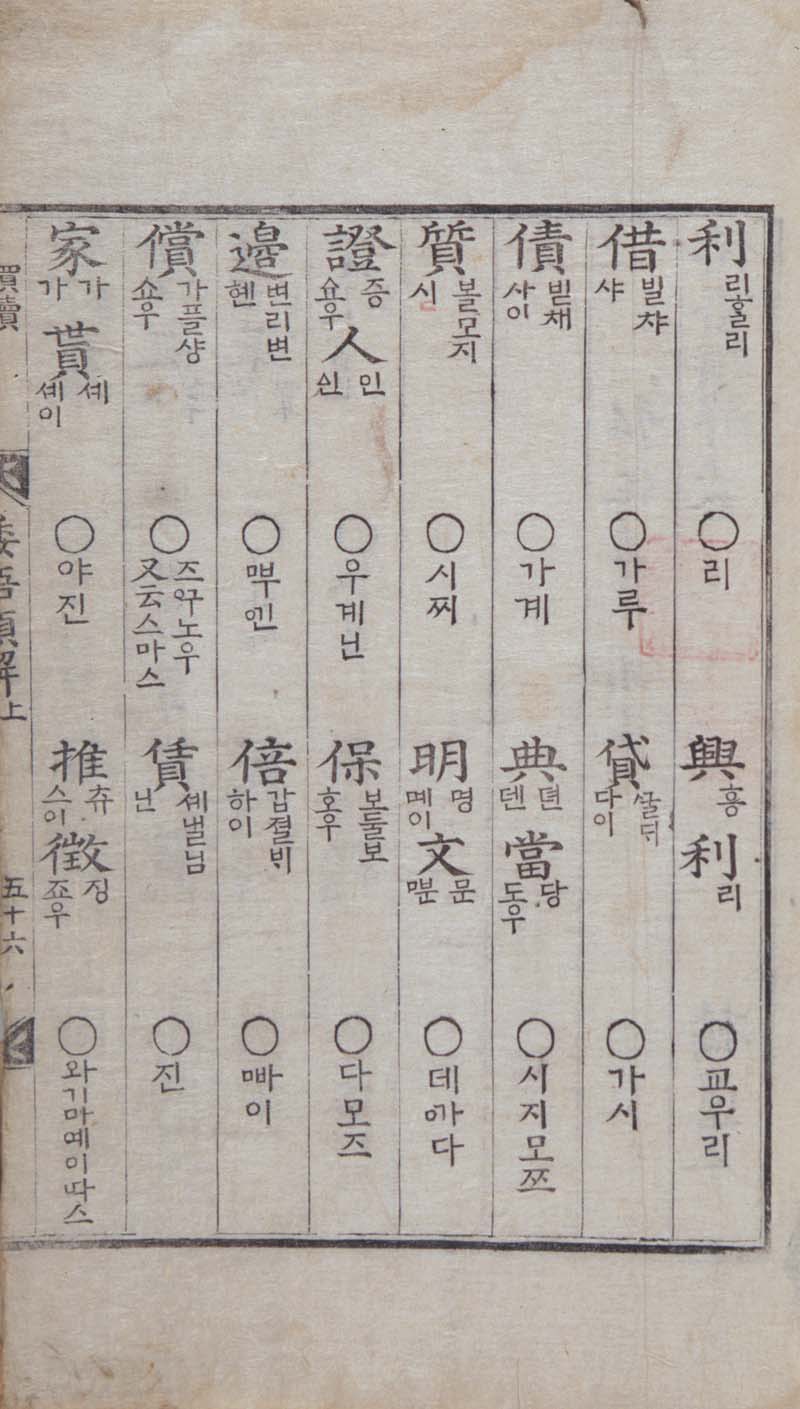 利 리홀리 ○리 興 흥 利 리 ○교우리
借 빌챠 샤 ○가루 貸 ᄭᅮᆯᄃᆡ 다이 ○가시
債 빋채 사이 ○가계 典 뎐 덴 當 당 도우 ○시지모쯔
質 볼모지 시 ○시찌 明 명 몌이 文 문 문 ○데ᅌᅡ다
證 증 쇼우 人 인 신 ○우계닌 保 보둘보 호우 ○다모즈
邊 변리변 헨 ○뿌 倍 갑졀ᄇᆡ 하이 ○빠이
償 가플샹 쇼우 ○즈ᅌᅮ노우 又云스마스 賃 셰낼님 닌 ○진
家 가 가 貰 셰 셰이 ○야진 推 츄 스이 徵 징 죠우 ○와기마예이따스
買賣 倭語類解上 五十六